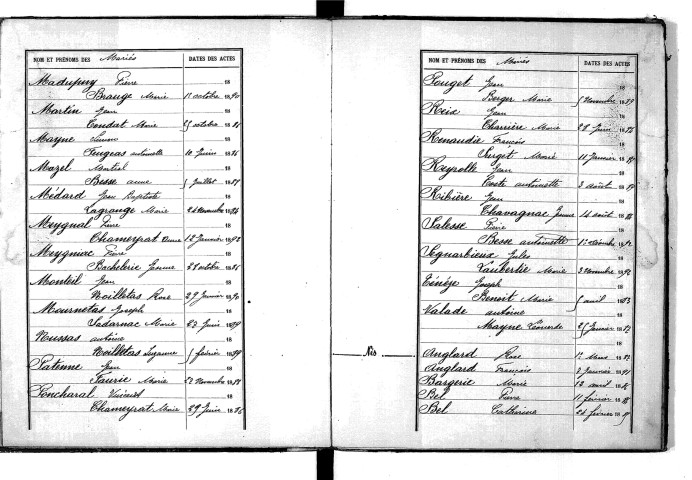 NOM ET PRÉNOMS DES Mariés DATES DES ACTES
Madupuy Pierre 18
Brauge Marie 17 octobre 1890
Martin Jean 18
Condat Marie 25 octobre 18
Mayne Simon 18
Feugeas antoinette 10 Juin 18
Mazel Martial 18
Besse anne Juillet 18
Médard Jean Baptiste 18
Lagrange Marie 24 Novembre 18
Meygnal Pierre 18
Chameyrat Anne 12 Janvier 18
Meygniac Pierre 18
Bachelerie Jeanne 28 octobre 18
Monteil Jean 18
Noilletas Rose 29 Janvier 18
Mournetas Joseph 18
Ladarnac Marie 23 Juin 1889
Nussas antoine 18
Noilletas Suzanne février 1889
Patenne Jean 18
Faurie Marie 22 Novembre 18
Poncharal Vincent 18
Chameyrat Marie 29 Juin 18
NOM ET PRÉNOMS DES Mariés DATES DES ACTES
Pouget Jean 18
Berger Marie Novembre 1889
Reix Jean 18
Charière Marie 28 Juin 18
Renaudie François 18
Surget Marie 11 Janvier 18
Reyrolle Jean 18
Coste antoinette 3 août 18
Ribière Jean 18
Chavagnac Jeanne 14 août 18
Salesse Pierre 18
Besse antoinette 18
Seguarbieux Jules 18
Laubertie Marie 3 Novembre 1892
Ténèze Joseph 18
Benoit Marie avril 1883
Valade antoine 18
Mayne Léonarde 25 Janvier 18
Nés
Anglard Rose 1r Mars 18
Anglard François 2 Janvier 1891
Bargerie Marie 12 avril 18
Bel Pierre 11 février 18
Bel Catherine 24 février 18